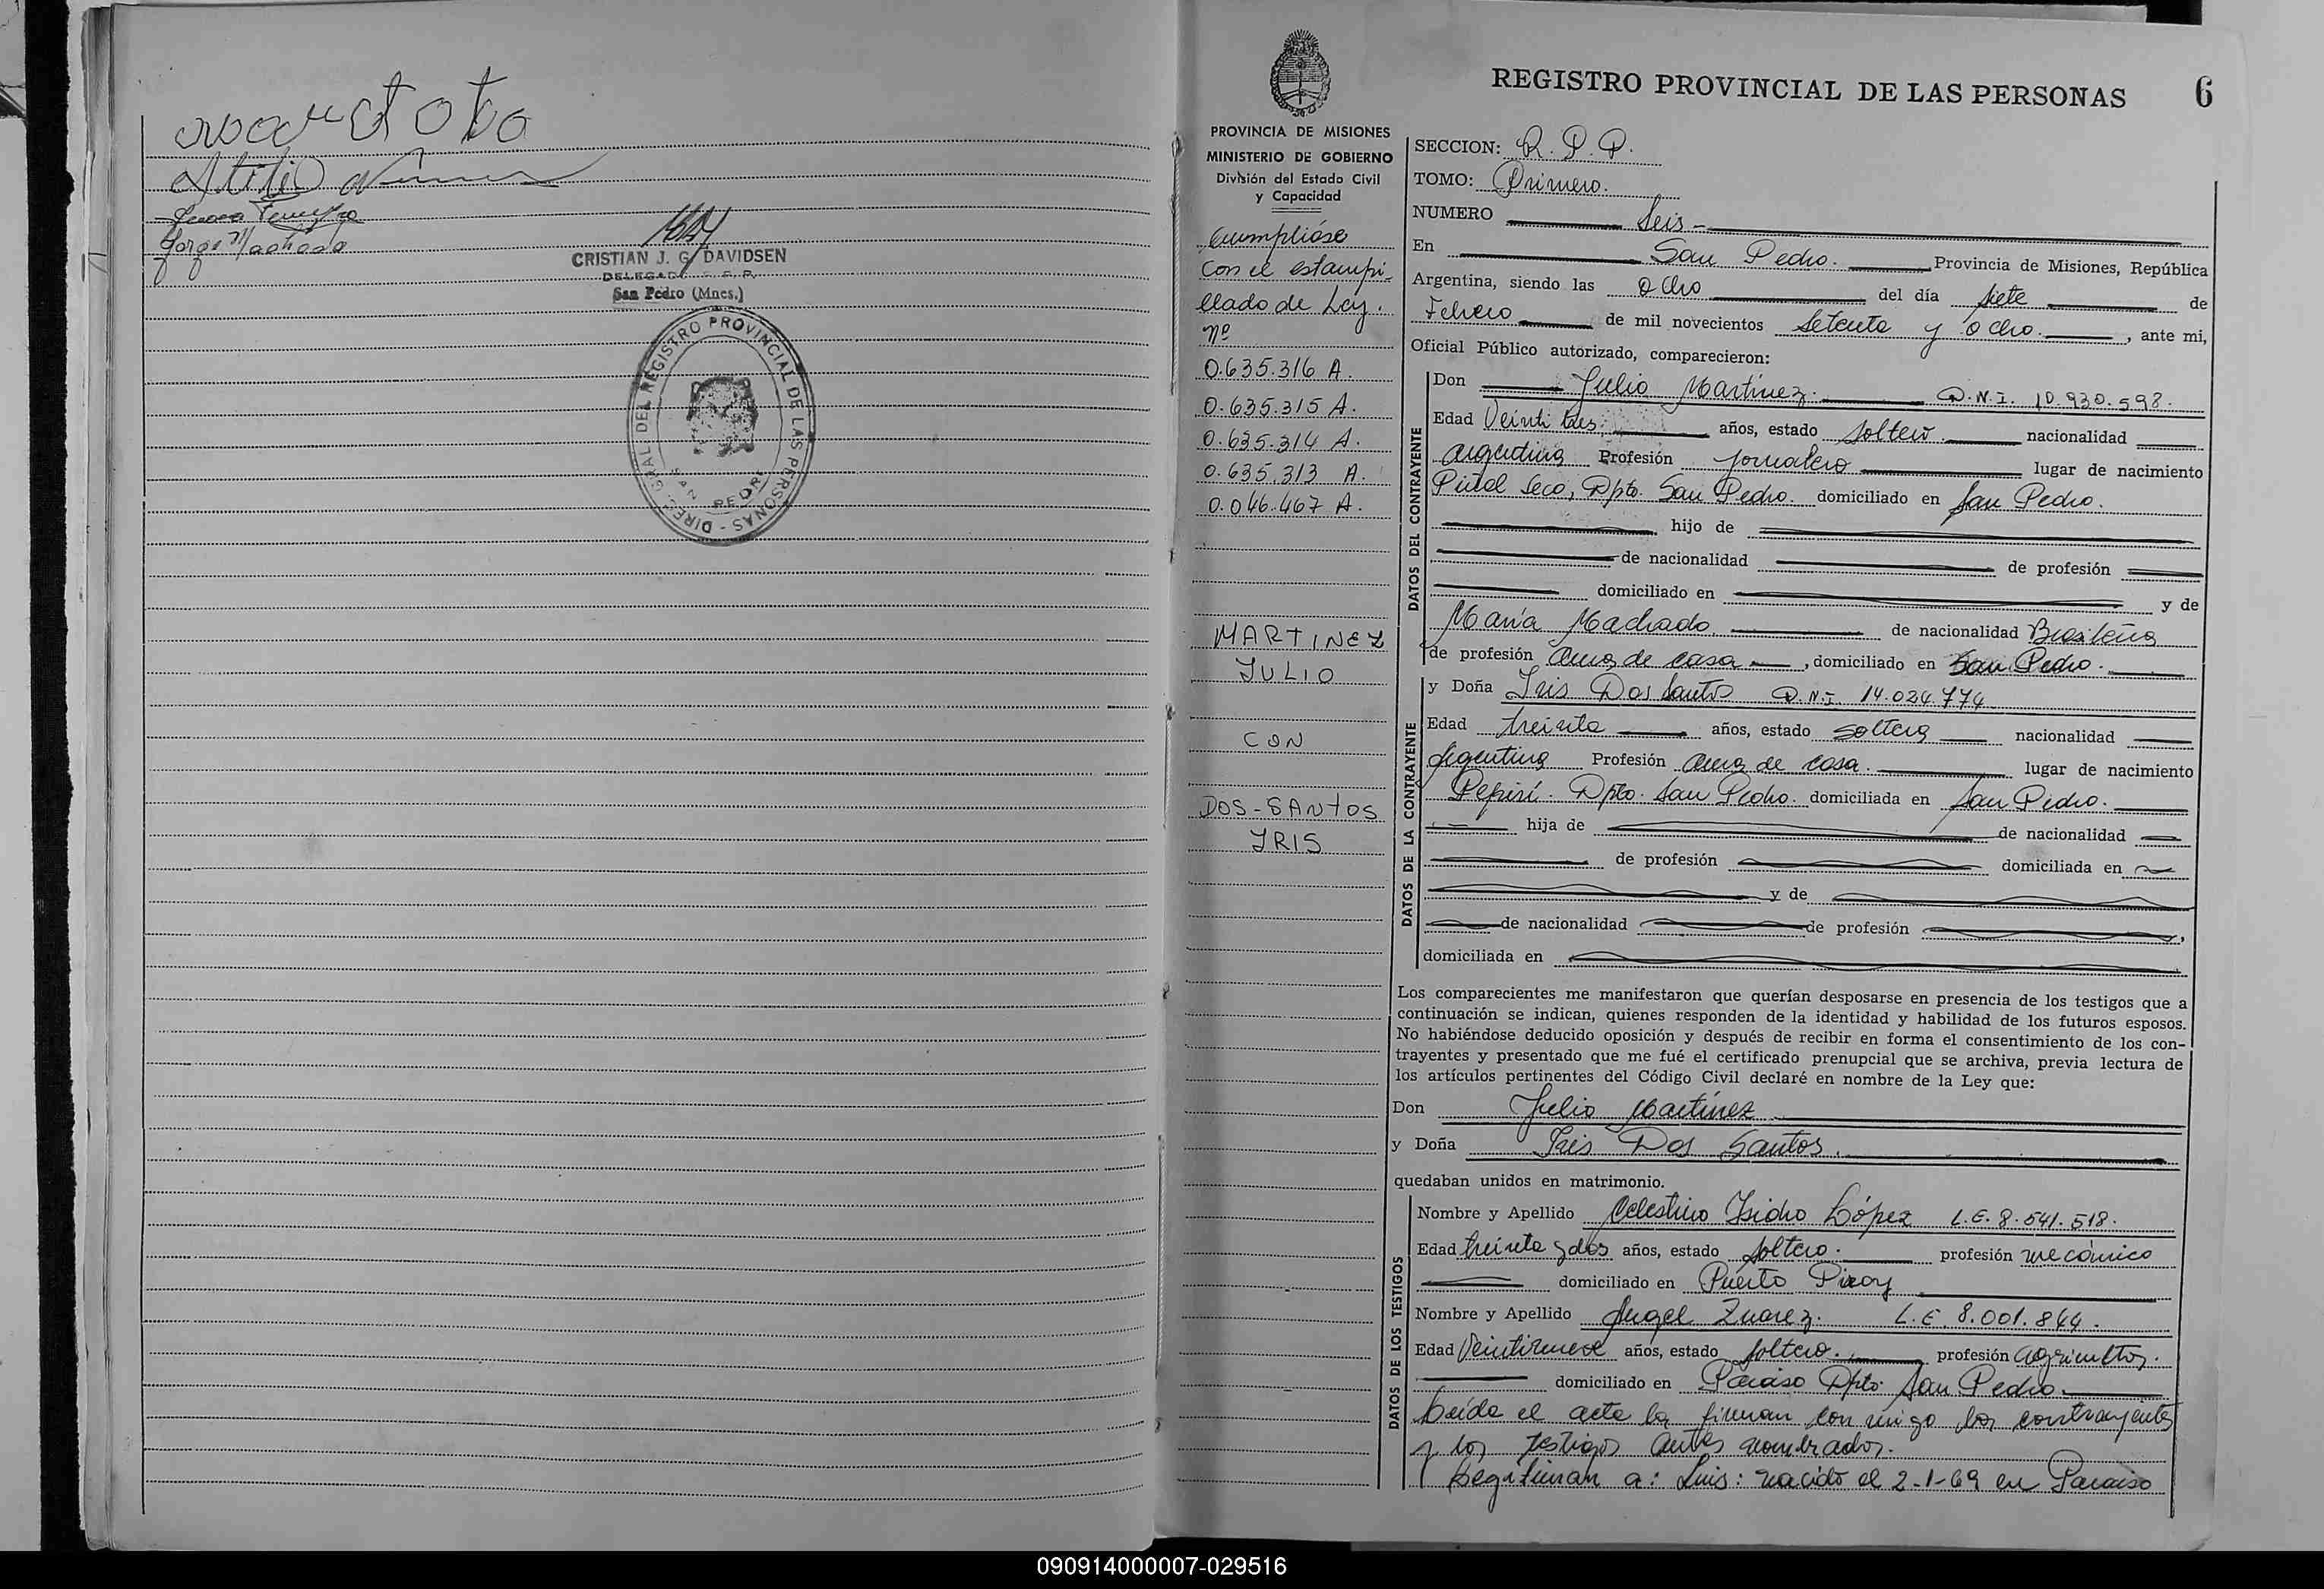 Atilio
Jorge Machado
CRISTIAN J. G. DAVIDSEN
DELEGADO R. P. P.
San Pedro (Mnes.)
DIREC. GRAL. DEL REGISTRO PROVINCIAL DE LAS PERSONAS -
SAN PEDRO
REGISTRO PROVINCIAL DE LAS PERSONAS 6
PROVINCIA DE MISIONES
MINISTERIO DE GOBIERNO
División del Estado Civil
y Capacidad
Cumplióse
con el estampi-
llado de Ley.
nº
0.635.316 A.
0.635.315 A.
0.635.314 A.
0.635.313 A.
0.046.467 A.
MARTINEZ
JULIO
CON
DOS-SANTOS
YRIS
SECCION: R. P. P.
TOMO: Primero.
NUMERO Seis -
En San Pedro. Provincia de Misiones, República
Argentina, siendo las ocho del día siete de
Febrero de mil novecientos setenta y ocho. , ante mi,
Oficial Público autorizado, comparecieron:
DATOS DEL CONTRAYENTE
Don Julio Martínez. D.N.I. 10.930.598.
Edad Veinti tres. años, estado soltero. nacionalidad
argentina Profesión jornalero lugar de nacimiento
Piñal Seco, Dpto. San Pedro. domiciliado en San Pedro.
hijo de
de nacionalidad de profesión
domiciliado en y de
María Machado. de nacionalidad Brasileña
de profesión ama de casa , domiciliado en San Pedro.
DATOS DE LA CONTRAYENTE
y Doña Iris Dos Santos D.N.I. 14.024.774
Edad treinta años, estado soltera nacionalidad
Argentina Profesión ama de casa. lugar de nacimiento
Pepirí. Dpto. San Pedro. domiciliada en San Pedro.
hija de de nacionalidad
de profesión domiciliada en
y de
de nacionalidad de profesión ,
domiciliada en
Los comparecientes me manifestaron que querían desposarse en presencia de los testigos que a
continuación se indican, quienes responden de la identidad y habilidad de los futuros esposos.
No habiéndose deducido oposición y después de recibir en forma el consentimiento de los con-
trayentes y presentado que me fué el certificado prenupcial que se archiva, previa lectura de
los artículos pertinentes del Código Civil declaré en nombre de la Ley que:
Don Julio Martínez
y Doña Iris Dos Santos.
quedaban unidos en matrimonio.
DATOS DE LOS TESTIGOS
Nombre y Apellido Celestino Isidro López L.E. 8.541.518.
Edad treinta y dos años, estado soltero. profesión mecánico
domiciliado en Puerto Piray
Nombre y Apellido Angel Zuarez. L.E. 8.001.844.
Edad Veintinueve años, estado soltero. profesión agricultor.
domiciliado en Paraiso Dpto. San Pedro.
Leída el acta la firman con migo los contrayentes
y los testigos antes nombrados.
Legitiman a: Luis: nacido el 2-1-69 en Paraiso
090914000007-029516